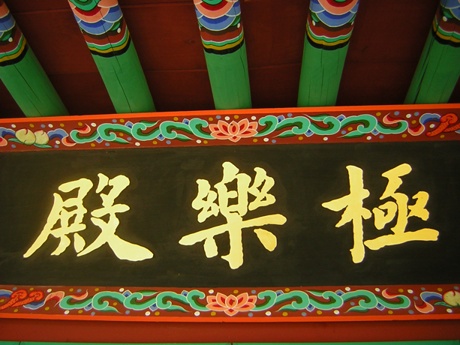 極樂殿